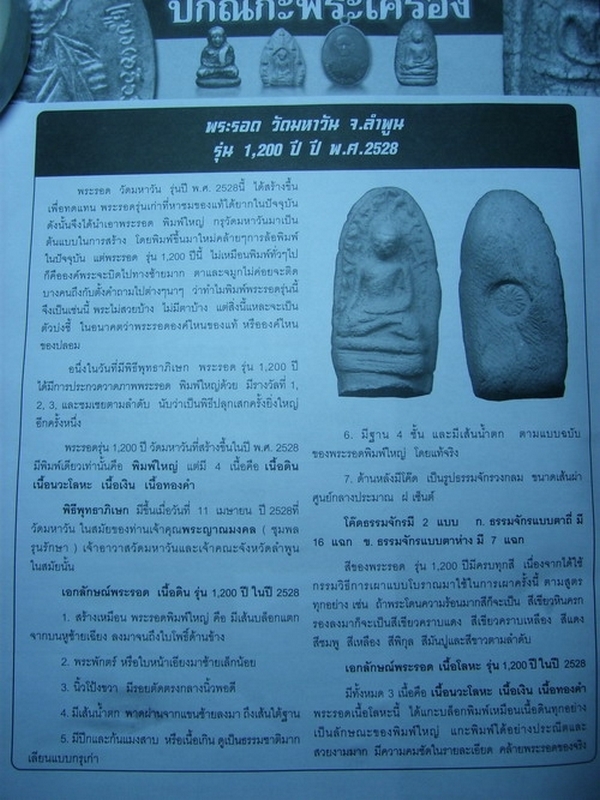 ปกิณกะพระเครื่อง
พระรอด วัดมหาวัน จ.ลำพูน
รุ่น 1,200 ปี ปี พ.ศ.2528
พระรอด วัดมหาวัน รุ่นปี พ.ศ. 2528นี้ ได้สร้างขึ้น
เพื่อทดแทน พระรอดรุ่นเก่าที่หาชมของแท้ได้ยากในปัจจุบัน
ดังนั้นจึงได้นำเอาพระรอด พิมพ์ใหญ่ กรุวัดมหาวันมาเป็น
ต้นแบบในการสร้าง โดยพิมพ์ขึ้นมาใหม่คล้ายๆการล้อพิมพ์
ในปัจจุบัน แต่พระรอด รุ่น 1,200 ปีนี้ ไม่เหมือนพิมพ์ทั่วๆไป
ก็คือองค์พระจะบิดไปทางซ้ายมาก ตาและจมูกไม่ค่อยจะติด
บางคนถึงกับตั้งคำถามไปต่างๆนาๆ ว่าทำไมพิมพ์พระรอดรุ่นนี้
จึงเป็นเช่นนี้ พระไม่สวยบ้าง ไม่มีตาบ้าง แต่สิ่งนี้แหละจะเป็น
ตัวบ่งชี้ ในอนาคตว่าพระรอดองค์ไหนของแท้ หรือองค์ไหน
ของปลอม
อนึ่งในวันที่มีพิธีพุทธาภิเษก พระรอด รุ่น 1,200 ปี
ได้มีการประกวดวาดภาพพระรอด พิมพ์ใหญ่ด้วย มีรางวัลที่ 1,
2, 3, และชมเชยตามลำดับ นับว่าเป็นพิธีปลุกเสกครั้งยิ่งใหญ่
อีกครั้งหนึ่ง
พระรอดรุ่น 1,200 ปี วัดมหาวันที่สร้างขึ้นในปี พ.ศ. 2528
มีพิมพ์เดียวเท่านั้นคือ พิมพ์ใหญ่ แต่มี 4 เนื้อคือ เนื้อดิน
เนื้อนวะโลหะ เนื้อเงิน เนื้อทองคำ
พิธีพุทธาภิเษก มีขึ้นเมื่อวันที่ 11 เมษายน ปี 2528ที่
วัดมหาวัน ในสมัยของท่านเจ้าคุณพระญาณมงคล ( ชุมพล
รุนรักษา ) เจ้าอาวาสวัดมหาวันและเจ้าคณะจังหวัดลำพูน
ในสมัยนั้น
เอกลักษณ์พระรอด เนื้อดิน รุ่น 1,200 ปี ในปี 2528
1. สร้างเหมือน พระรอดพิมพ์ใหญ่ คือ มีเส้นบล็อกแตก
จากบนหูซ้ายเฉียง ลงมาจนถึงใบโพธิ์ด้านข้าง
2. พระพักตร์ หรือใบหน้าเอียงมาซ้ายเล็กน้อย
3. นิ้วโป้งขวา มีรอยตัดตรงกลางนิ้วพอดี
4. มีเส้นน้ำตก พาดผ่านจากแขนซ้ายลงมา ถึงเส้นใต้ฐาน
5. มีปีกและก้นแมงสาบ หรือเนื้อเกิน ดูเป็นธรรมชาติมาก
เลียนแบบกรุเก่า
6. มีฐาน 4 ชั้น และมีเส้นน้ำตก ตามแบบฉบับ
ของพระรอดพิมพ์ใหญ่ โดยแท้จริง
7. ด้านหลังมีโค๊ด เป็นรูปธรรมจักรวงกลม ขนาดเส้นผ่า
ศูนย์กลางประมาณ ฝ เซ็นต์
โค๊ดธรรมจักรมี 2 แบบ ก. ธรรมจักรแบบตาถี่ มี
16 แฉก ข. ธรรมจักรแบบตาห่าง มี 7 แฉก
สีของพระรอด รุ่น 1,200 ปีมีครบทุกสี เนื่องจากได้ใช้
กรรมวิธีการเผาแบบโบราณมาใช้ในการเผาครั้งนี้ ตามสูตร
ทุกอย่าง เช่น ถ้าพระโดนความร้อนมากสีก็จะเป็น สีเขียวหินครก
รองลงมาก็จะเป็นสีเขียวคราบแดง สีเขียวคราบเหลือง สีแดง
สีชมพู สีเหลือง สีพิกุล สีมันปูและสีขาวตามลำดับ
เอกลักษณ์พระรอด เนื้อโลหะ รุ่น 1,200 ปี ในปี 2528
มีทั้งหมด 3 เนื้อคือ เนื้อนวะโลหะ เนื้อเงิน เนื้อทองคำ
พระรอดเนื้อโลหะนี้ ได้แกะบล็อกพิมพ์เหมือนเนื้อดินทุกอย่าง
เป็นลักษณะของพิมพ์ใหญ่ แกะพิมพ์ได้อย่างประณีตและ
สวยงามมาก มีความคมชัดในรายละเอียด คล้ายพระรอดของจริง